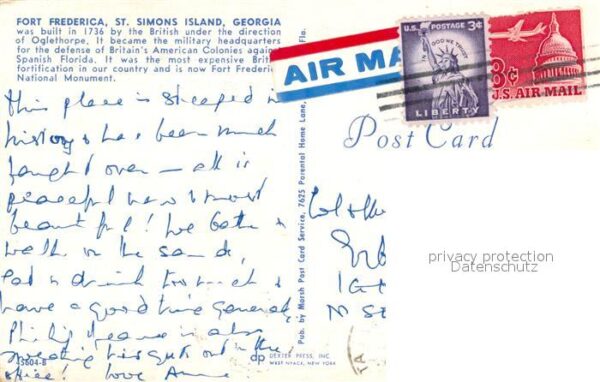 FORT FREDERICA, ST. SIMONS ISLAND, GEORGIA
was built in 1736 by the British under the direction
of Oglethorpe. It became the military headquarters
for the defense of Britain's American Colonies against
Spanish Florida. It was the most expensive
fortification in our country and is now Fort
National Monument.
this place is steeped in
history & has been much
fought over — all is
peaceful now & most
beautiful! We bathe &
walk in the sand,
eat & drink too much &
have a good time
is also
sweating his guts out in the
office! Love Anne
AIR MA
U.S. POSTAGE 3¢
IN GOD WE TRUST
LIBERTY
8¢
U.S. AIR MAIL
Post Card
Pub. by Marsh Post Card Service, 7625 Parental Home Lane, Fla.
privacy protection
Datenschutz
dp DEXTER PRESS, INC.
WEST NYACK, NEW YORK